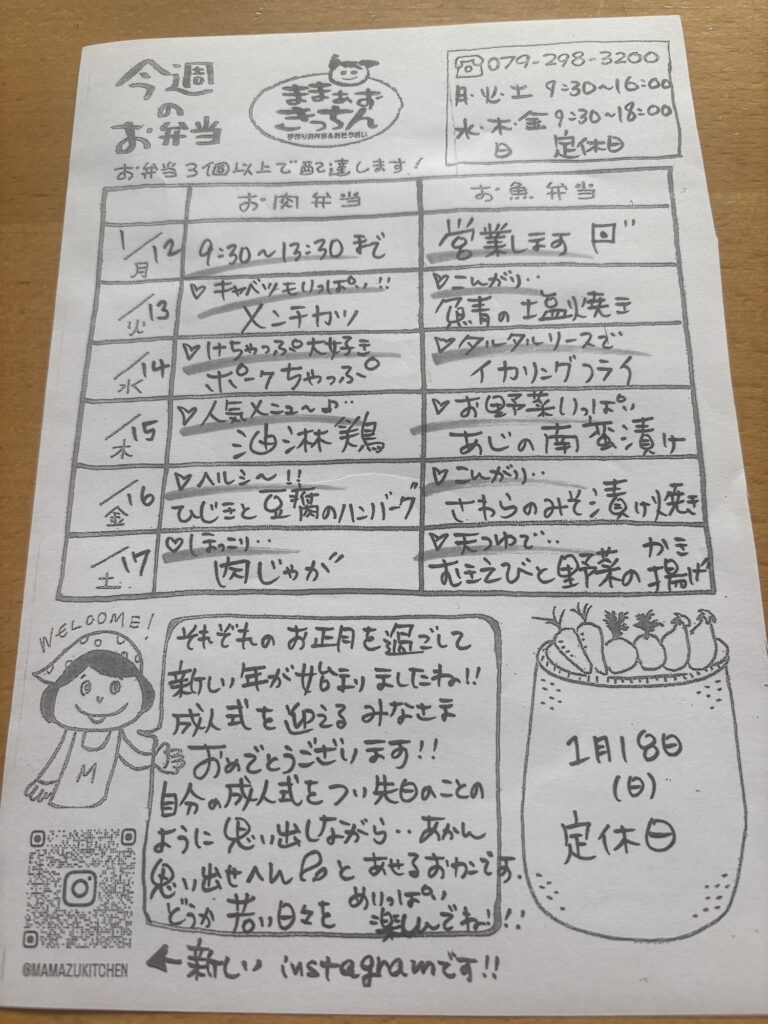 今週
の
お弁当
ままぁず
きっちん
手作りお弁当&おそうざい
☎079-298-3200
月・火・土 9:30~16:00
水・木・金 9:30~18:00
日 定休日
お弁当3個以上で配達します!
お肉弁当 お魚弁当
1/12 月 9:30~13:30まで 営業します
/13 火 ♡キャベツもいっぱい!! メンチカツ ♡こんがり‥ 鯖の塩焼き
/14 水 ♡けちゃっぷ大好き ポークちゃっぷ ♡タルタルソースで イカリングフライ
/15 木 ♡人気メニュ〜♪‥ 油淋鶏 ♡お野菜いっぱい あじの南蛮漬け
/16 金 ♡ヘルシ〜!! ひじきと豆腐のハンバーグ ♡こんがり‥ さわらのみそ漬け焼き
/17 土 ♡ほっこり‥ 肉じゃが ♡天つゆで‥ むきえびと野菜のかき揚げ
WELCOME!
M
それぞれのお正月を過ごして
新しい年が始まりましたね!!
成人式を迎えるみなさま
おめでとうございます!!
自分の成人式をつい先日のことの
ように思い出しながら‥あかん
思い出せへんとあせるおかんです.
どうか若い日々をめいっぱい楽しんでね!!
1月18日
(日)
定休日
@MAMAZUKITCHEN
←新しいinstagramです!!